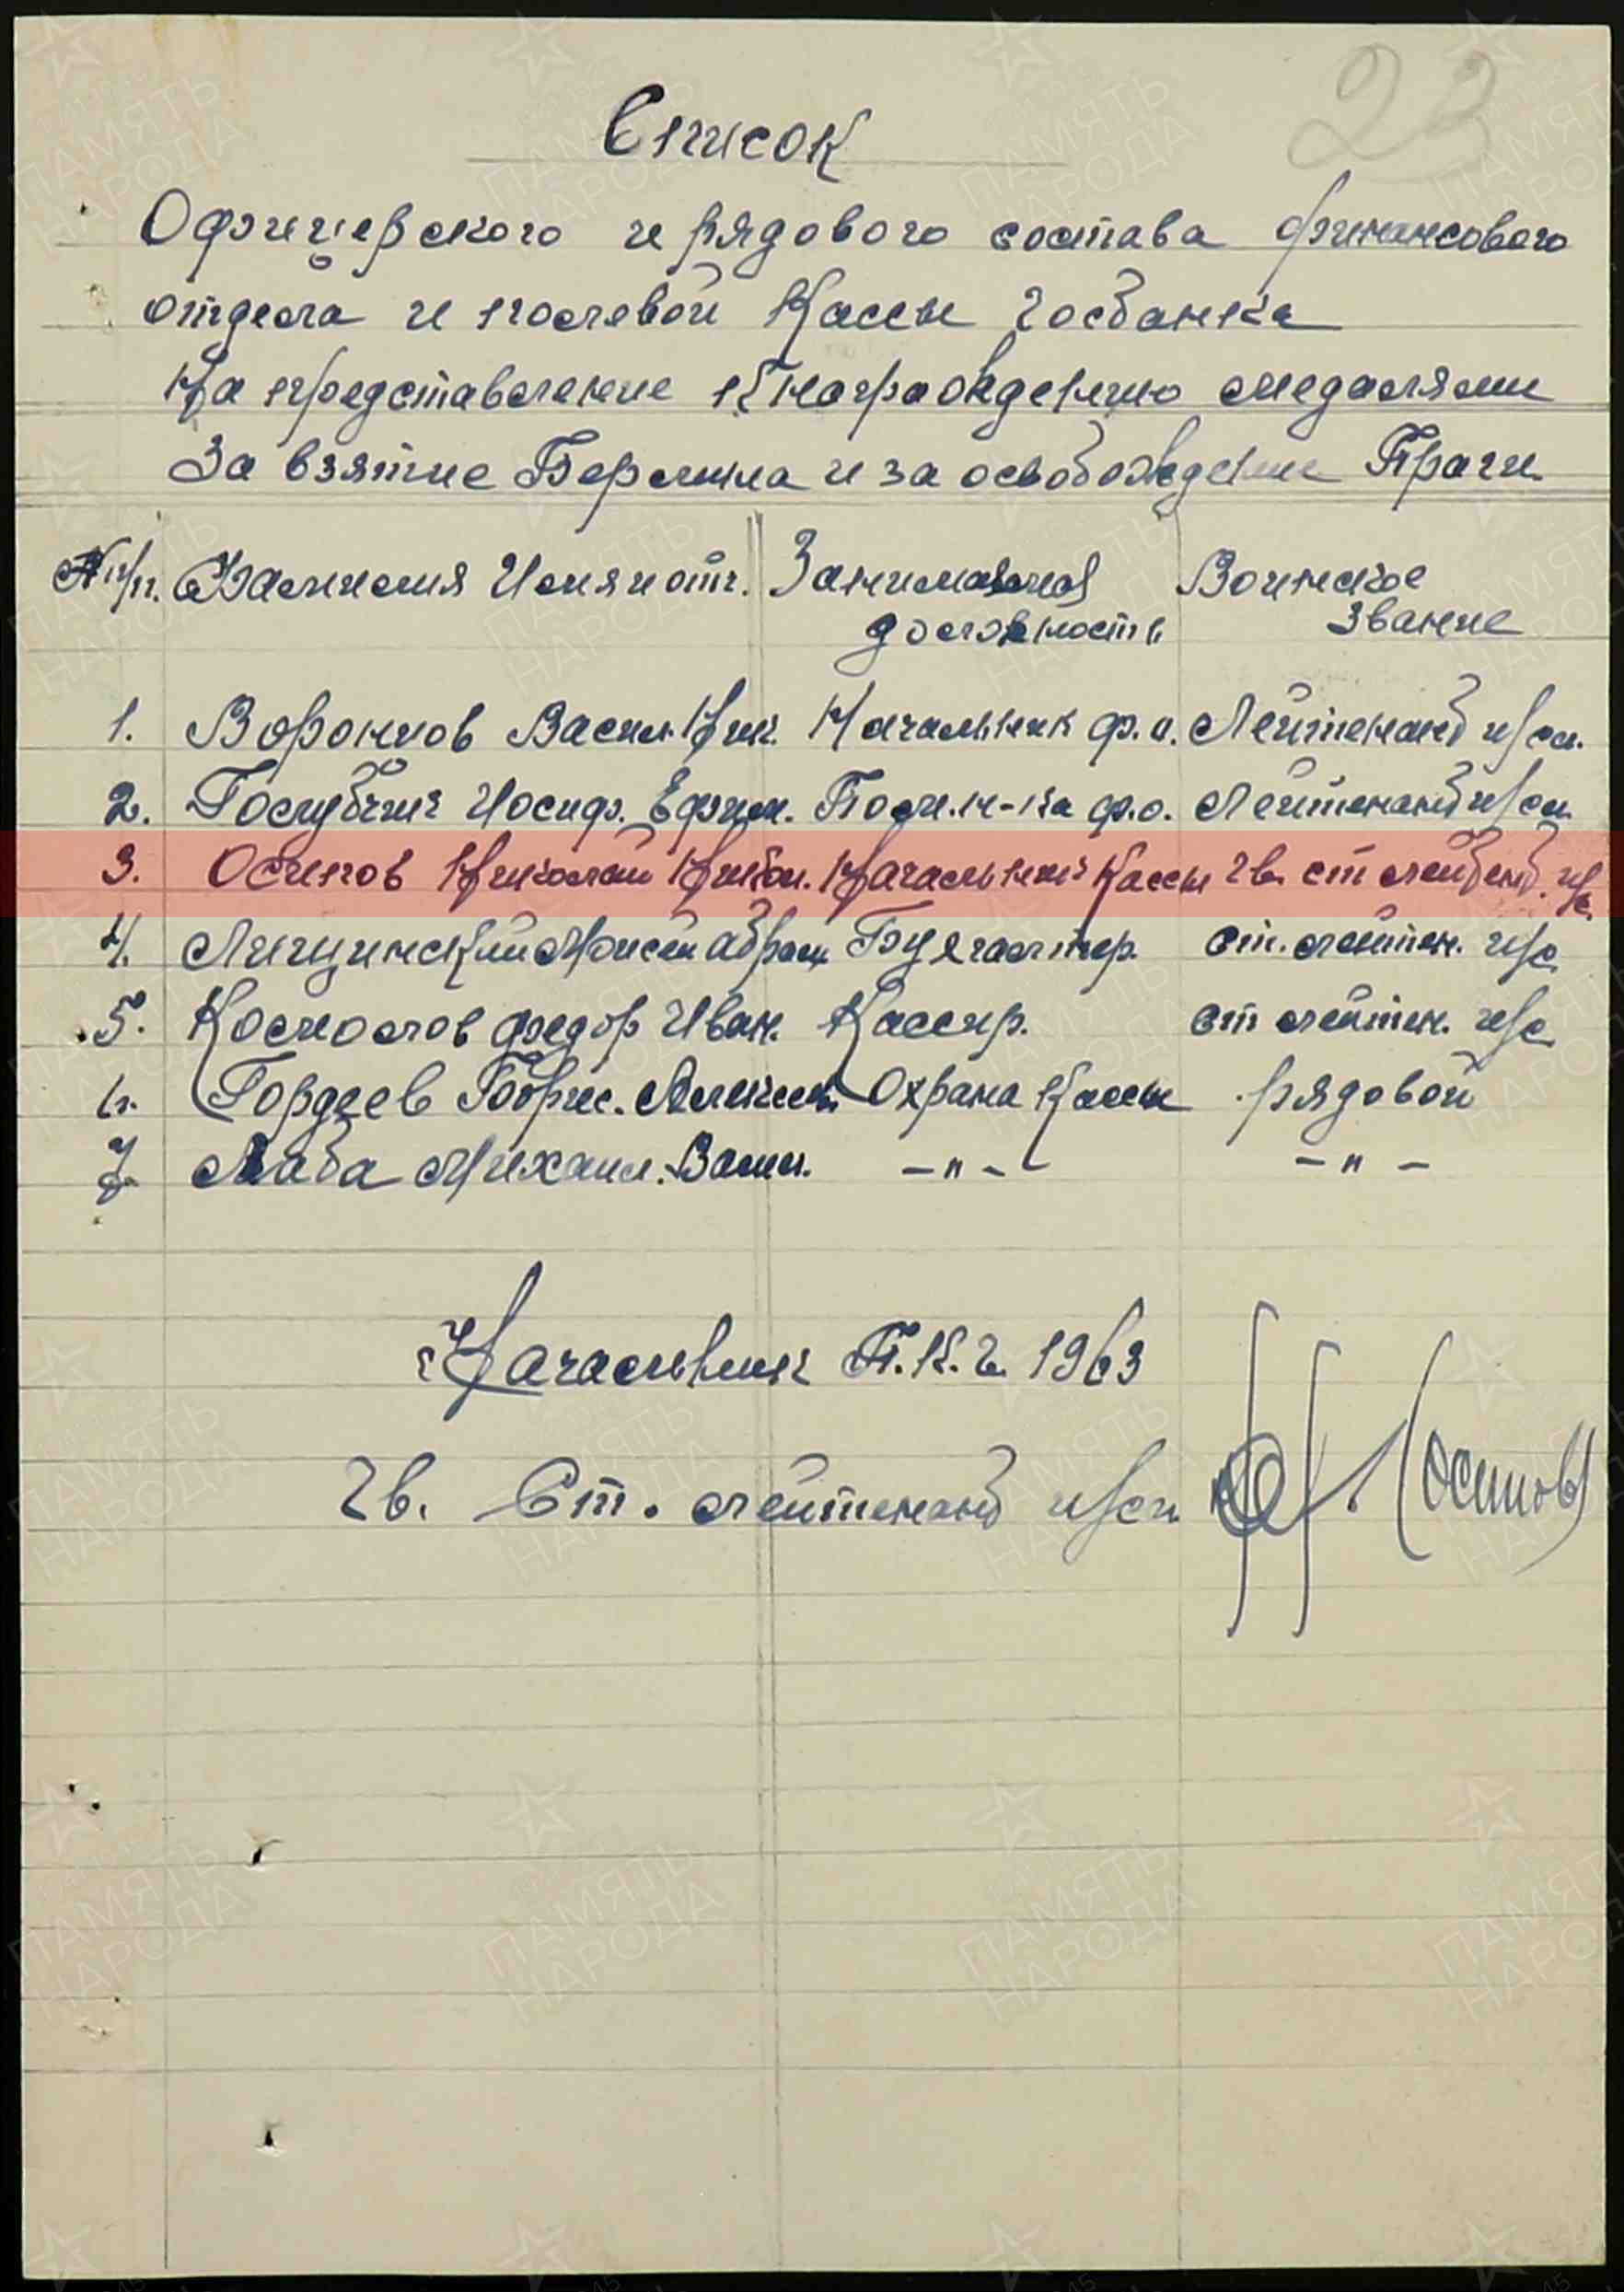 23
Список
Офицерского и рядового состава финансового
отдела и полевой Кассы Госбанка
На представление к награждению медалями
За взятие Берлина и за освобождение Праги
№ п/п. Фамилия Имя и отч. Занимаемая Воинское
должность звание
1. Воронков Васил. Ник. Начальник ф.о. Лейтенант и/сл.
2. Голубчик Иосиф. Ефим. Пом. н-ка ф.о. Лейтенант и/сл.
3. Осипов Николай Начальник Кассы Гв. ст лейтент. и/с.
4. Моисей Абрам Бухгалтер. ст. лейтен. и/с
5. Космолов Федор Иван. Кассир. ст лейтен. и/с
6. Гордеев Борис. Алексеев. Охрана Кассы рядовой
7 Лаба Михаил. Васил. –"– –"–
Начальник П.К.Г. 1963
Гв. Ст. лейтенант и/сл (Осипов)
ПАМЯТЬ
НАРОДА